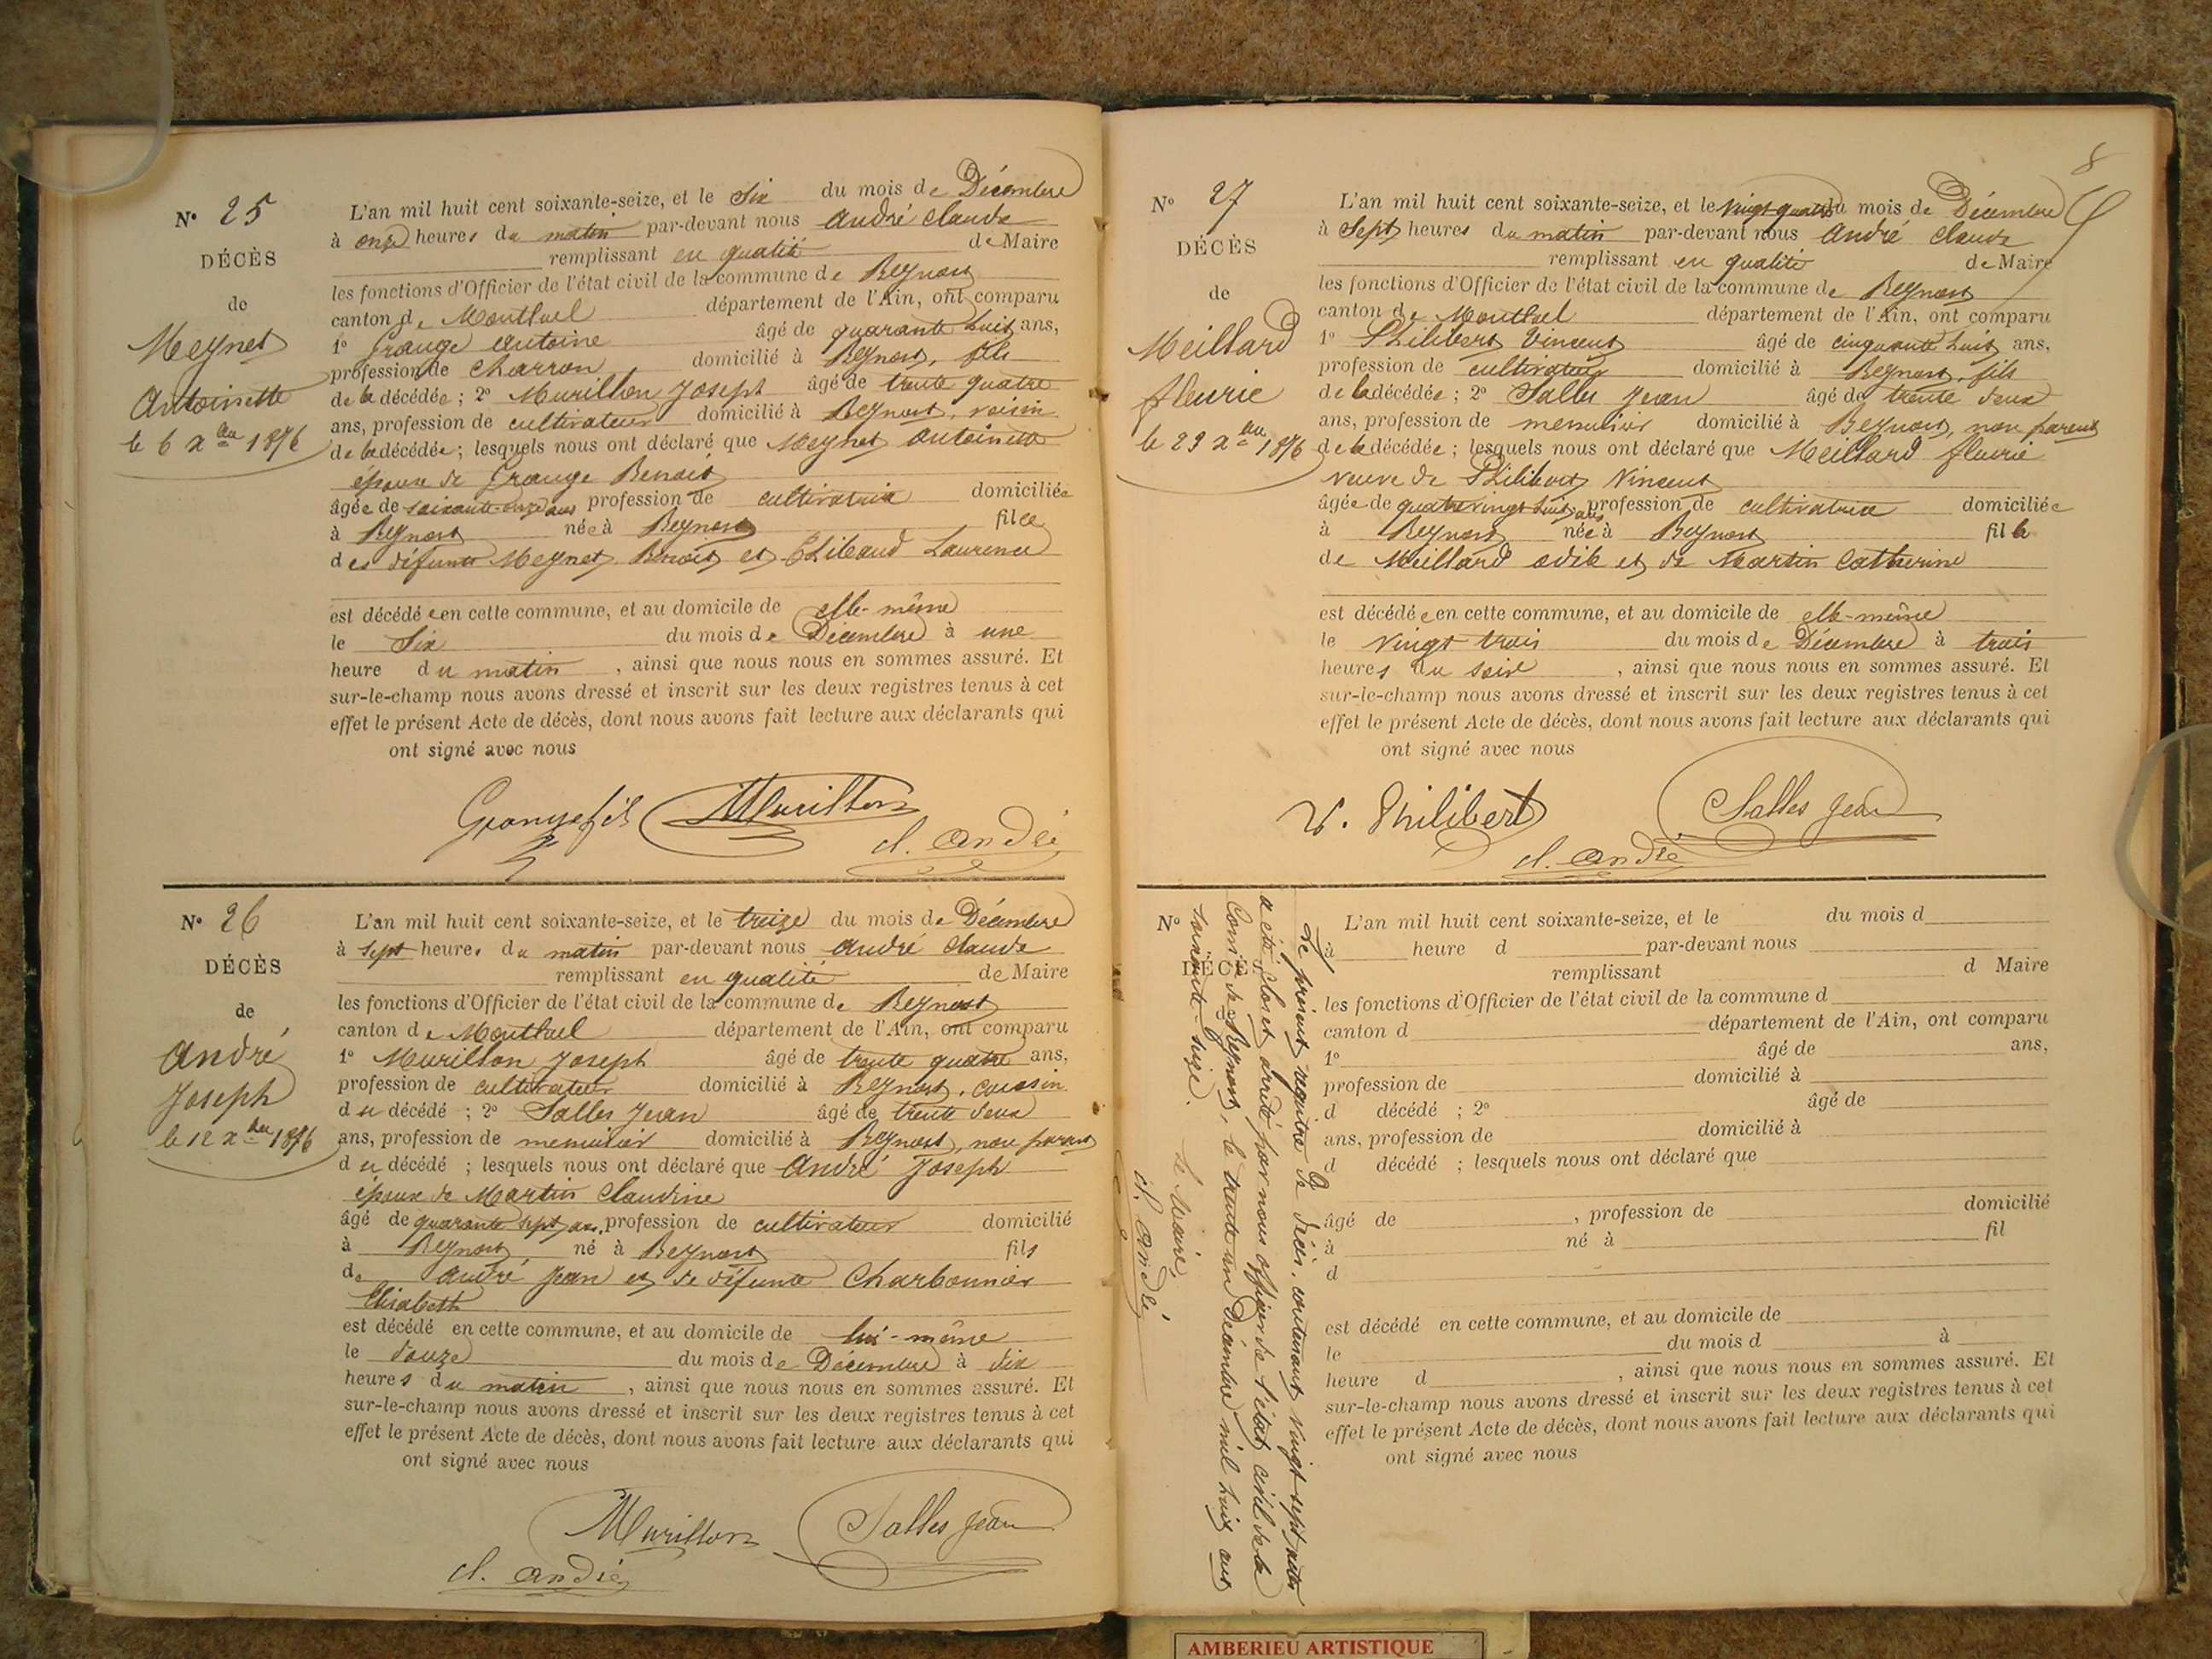 N° 25
DÉCÈS
de
Meynet
Antoinette
le 6 Xbre 1876
L'an mil huit cent soixante-seize, et le Six du mois de Décembre
à onze heures du matin par-devant nous André Claude
remplissant en qualité de Maire
les fonctions d'Officier de l'état civil de la commune de Beynost
canton de Montluel département de l'Ain, ont comparu
1° Grange Antoine âgé de quarante huit ans,
profession de Charron domicilié à Beynost, fils
de la décédée ; 2° Murillon Joseph âgé de trente quatre
ans, profession de cultivateur domicilié à Beynost, voisin
de la décédée ; lesquels nous ont déclaré que Meynet Antoinette
épouse de Grange Benoit
âgée de soixante-onze ans profession de cultivatrice domiciliée
à Beynost née à Beynost fille
des défunts Meynet Benoit et Thibaud Laurence
est décédée en cette commune, et au domicile de elle-même
le Six du mois de Décembre à une
heure du matin, ainsi que nous nous en sommes assuré. Et
sur-le-champ nous avons dressé et inscrit sur les deux registres tenus à cet
effet le présent Acte de décès, dont nous avons fait lecture aux déclarants qui
ont signé avec nous
Grange fils Murillon
cl. André
N° 26
DÉCÈS
de
André
Joseph
le 12 Xbre 1876
L'an mil huit cent soixante-seize, et le treize du mois de Décembre
à sept heures du matin par-devant nous André Claude
remplissant en qualité de Maire
les fonctions d'Officier de l'état civil de la commune de Beynost
canton de Montluel département de l'Ain, ont comparu
1° Murillon Joseph âgé de trente quatre ans,
profession de cultivateur domicilié à Beynost, cousin
du décédé ; 2° Salles Jean âgé de trente deux
ans, profession de menuisier domicilié à Beynost, non parent
du décédé ; lesquels nous ont déclaré que André Joseph
époux de Martin Claudine
âgé de quarante sept ans, profession de cultivateur domicilié
à Beynost, né à Beynost fils
de André Jean et de défunte Charbonnier
Elisabeth
est décédé en cette commune, et au domicile de lui-même
le douze du mois de Décembre à dix
heures du matin, ainsi que nous nous en sommes assuré. Et
sur-le-champ nous avons dressé et inscrit sur les deux registres tenus à cet
effet le présent Acte de décès, dont nous avons fait lecture aux déclarants qui
ont signé avec nous
Murillon Salles Jean
cl. André
8
N° 27
DÉCÈS
de
Meillard
fleurie
le 23 Xbre 1876
L'an mil huit cent soixante-seize, et le vingt quatre du mois de Décembre
à Sept heures du matin par-devant nous André Claude
remplissant en qualité de Maire
les fonctions d'Officier de l'état civil de la commune de Beynost
canton de Montluel département de l'Ain, ont comparu
1° Philibert Vincent âgé de cinquante huit ans,
profession de cultivateur domicilié à Beynost, fils
de la décédée ; 2° Salles Jean âgé de trente deux
ans, profession de menuisier domicilié à Beynost, non parent
de la décédée ; lesquels nous ont déclaré que Meillard fleurie
veuve de Philibert Vincent
âgée de quatre vingt huit ans profession de cultivatrice domiciliée
à Beynost née à Beynost fille
de Meillard Odile et de Martin Catherine
est décédée en cette commune, et au domicile de elle-même
le vingt trois du mois de Décembre à trois
heures du soir, ainsi que nous nous en sommes assuré. Et
sur-le-champ nous avons dressé et inscrit sur les deux registres tenus à cet
effet le présent Acte de décès, dont nous avons fait lecture aux déclarants qui
ont signé avec nous
V. Philibert Salles Jean
cl. André
N°
DÉCÈS
L'an mil huit cent soixante-seize, et le du mois d
à heure d par-devant nous
remplissant d Maire
les fonctions d'Officier de l'état civil de la commune d
canton d département de l'Ain, ont comparu
1° âgé de ans,
profession de domicilié à
d décédé ; 2° âgé de
ans, profession de domicilié à
d décédé ; lesquels nous ont déclaré que
âgé de , profession de domicilié
à né à fil
d
est décédé en cette commune, et au domicile de
le du mois d à
heure d , ainsi que nous nous en sommes assuré. Et
sur-le-champ nous avons dressé et inscrit sur les deux registres tenus à cet
effet le présent Acte de décès, dont nous avons fait lecture aux déclarants qui
ont signé avec nous
Le présent registre de Décès, contenant vingt sept actes
a été clos et arrêté par nous officier de l'état civil de la
Comne de Beynost, le trente un Décembre mil huit cent
soixante seize.
Le Maire,
cl. André
AMBERIEU ARTISTIQUE